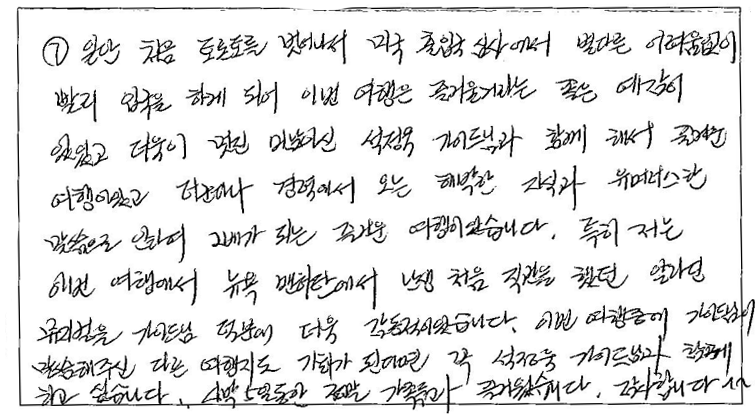 ⑦ 일단 처음 토론토를 벗어나서 미국 출입국 심사에서 별다른 어려움없이
빨리 입국을 하게 되어 이번 여행은 즐거울거라는 좋은 예감이
있었고 더욱이 멋진 미남이신 석정욱 가이드님과 함께 해서 즐거운
여행이었고 경력에서 오는 해박한 지식과 유머러스한
말씀으로 인하여 배가 되는 즐거운 여행이었습니다. 특히 저는
이번 여행에서 뉴욕 맨하탄에서 난생 처음 직관을 했던 알라딘
뮤지컬을 가이드님 덕분에 더욱 감동적이었습니다. 이번 여행중에 가이드님이
말씀해주신 다른 여행지도 기회가 된다면 꼭 석정욱 가이드님과 함께
하고 싶습니다. 4박 5일동안 정말 가족들과 즐거웠습니다. 감사합니다 ^^